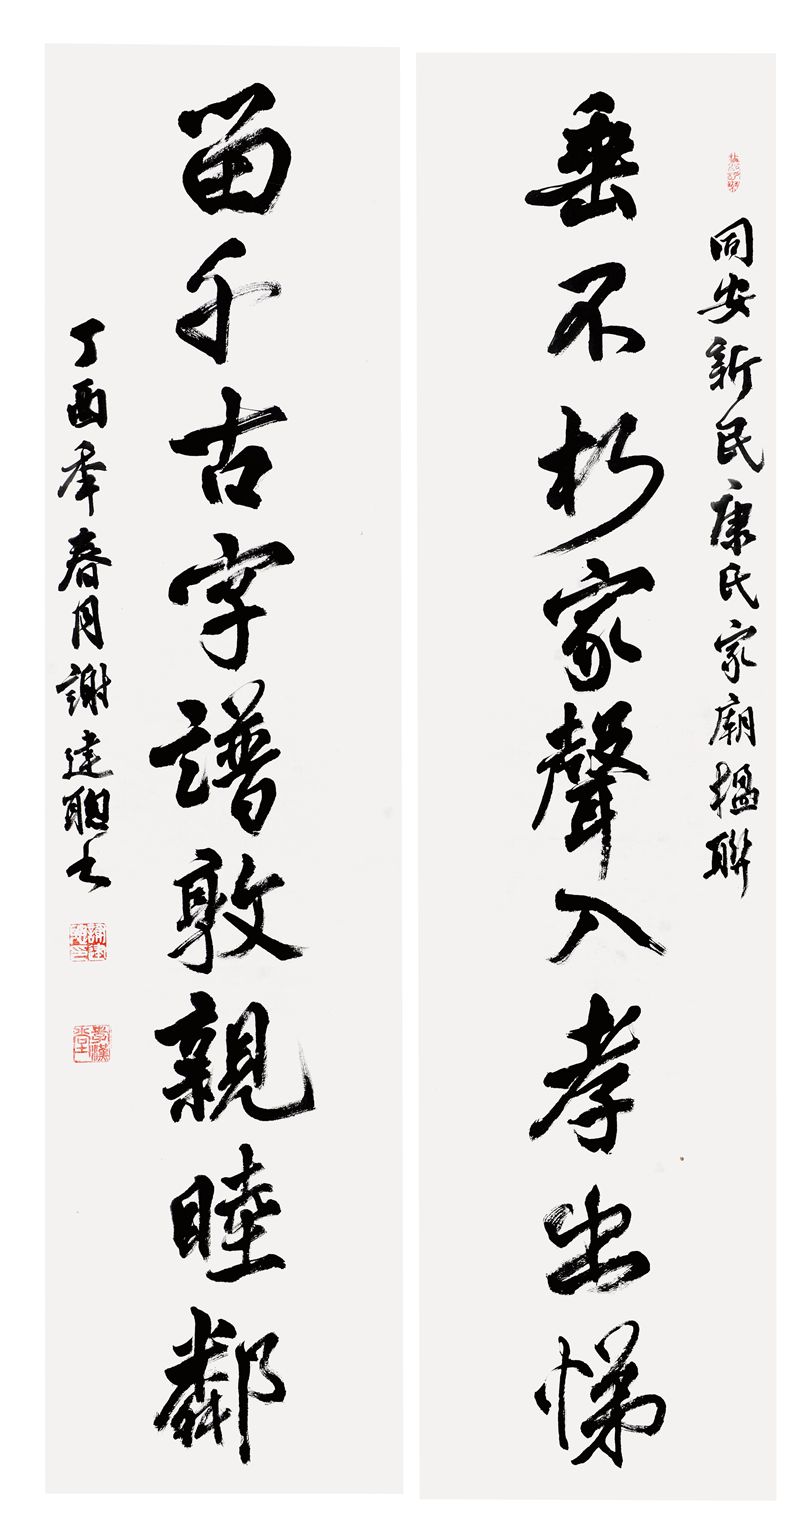 同安新民康氏家廟楹聯
垂不朽家聲入孝出悌
留千古字譜敦親睦鄰
丁酉年春月謝達聰书